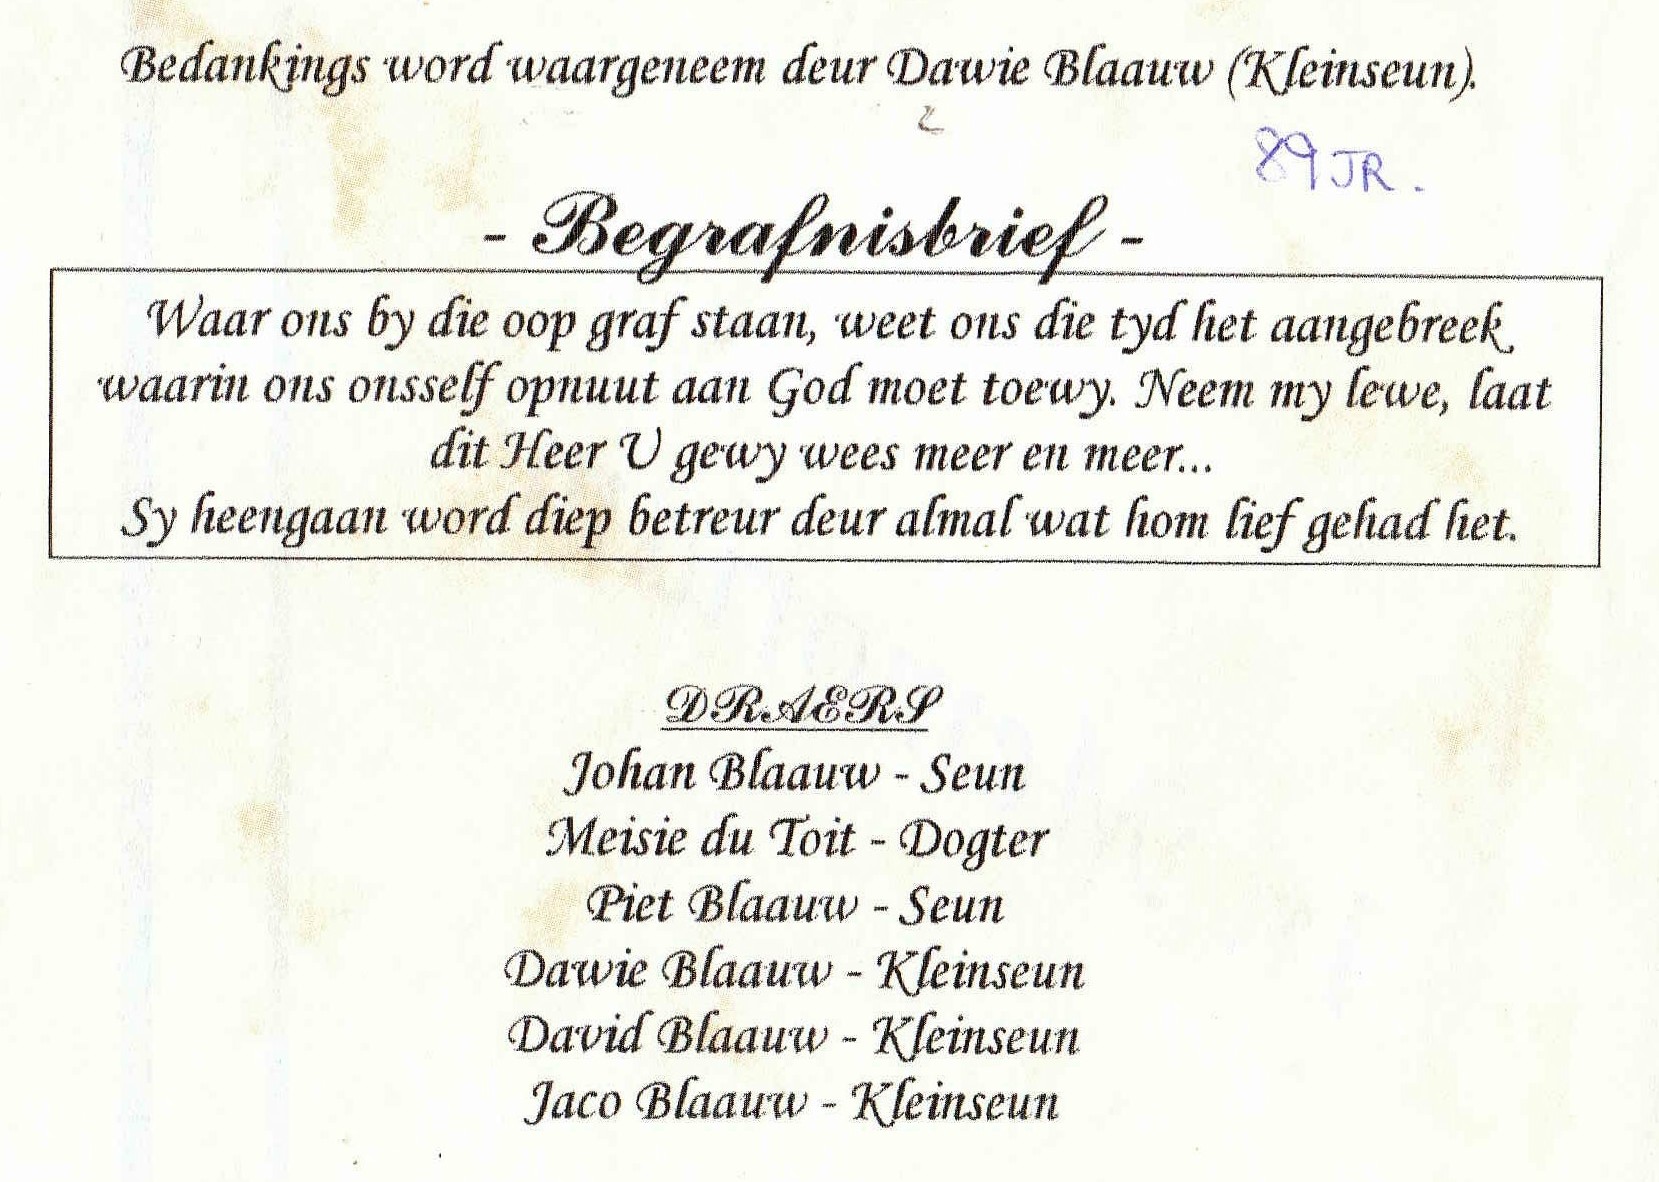 Bedankings word waargeneem deur Dawie Blaauw (Kleinseun).
89 JR.
- Begrafnisbrief -
Waar ons by die oop graf staan, weet ons die tyd het aangebreek
waarin ons onsself opnuut aan God moet toewy. Neem my lewe, laat
dit Heer U gewy wees meer en meer...
Sy heengaan word diep betreur deur almal wat hom lief gehad het.
DRAERS
Johan Blaauw - Seun
Meisie du Toit - Dogter
Piet Blaauw - Seun
Dawie Blaauw - Kleinseun
David Blaauw - Kleinseun
Jaco Blaauw - Kleinseun